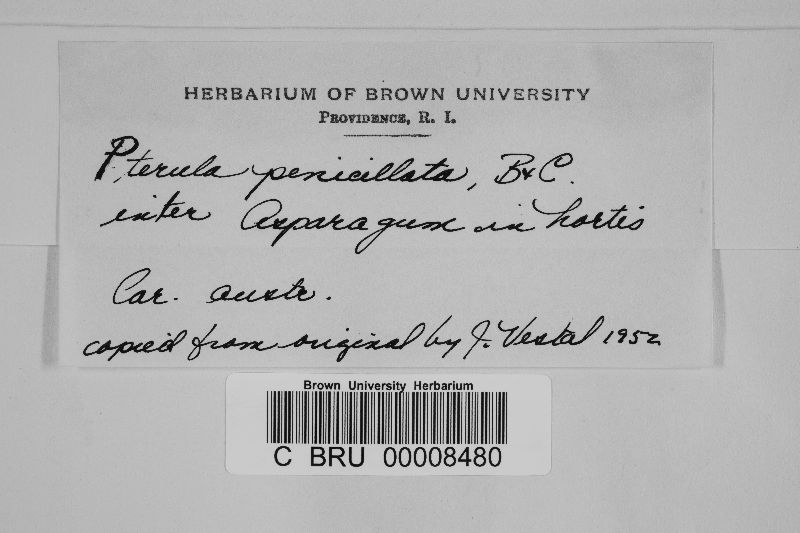 HERBARIUM OF BROWN UNIVERSITY
PROVIDENCE, R. I.
Pterula penicillata, B&C.
inter Asparagum in hortis
Car. austr.
copied from original by J. Vestal 1952
Brown University Herbarium
C BRU 00008480